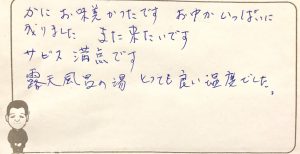 かにお味美かったです おなかいっぱいに
成りました また来たいです
サービス満点です
露天風呂の湯 とっても良い温度でした。